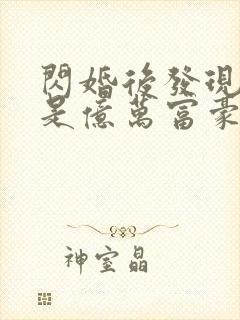 閃婚後發現
是億萬富豪
神室晶